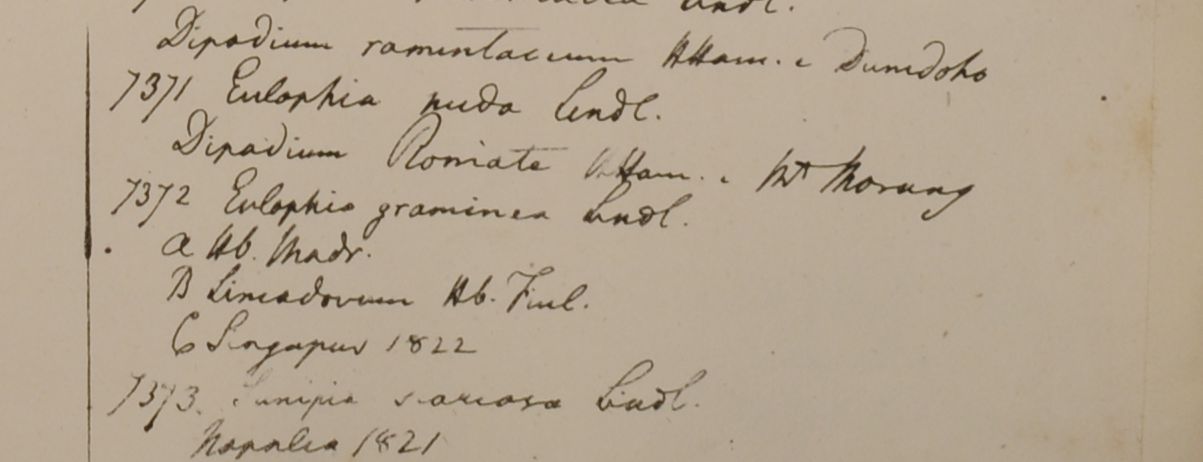 Lindl.
Dipodium ramentaceum HHam. e Dumdoho
7371 Eulophia nuda Lindl.
Dipodium Roxiate HHam. e Mt Morung
7372 Eulophia graminea Lindl.
a Hb. Madr.
B Limodorum Hb. Finl.
C Singapur 1822
7373. Sunipia scariosa Lindl.
Napalia 1821